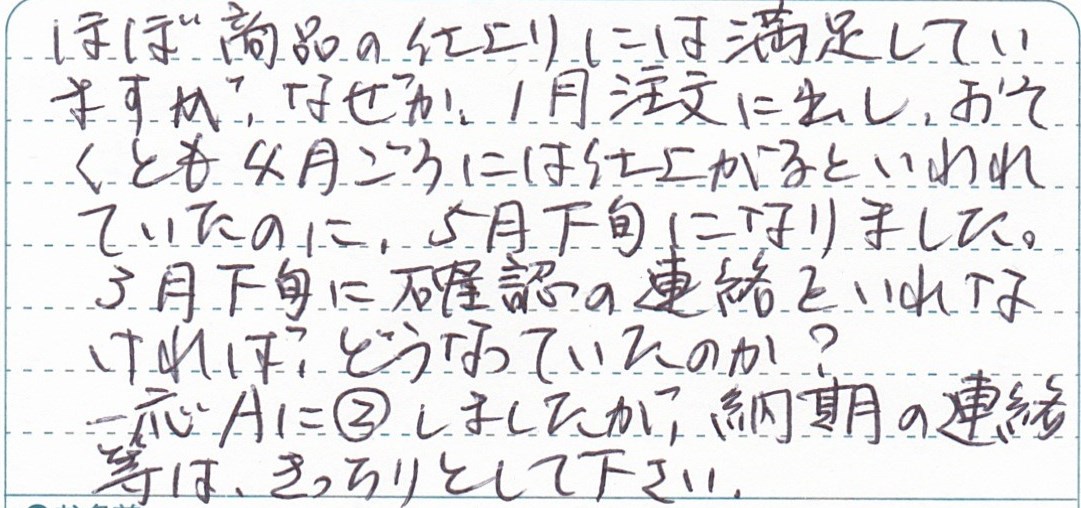 ほぼ商品の仕上りには満足してい
ますが、なぜか、1月注文に出し、おそ
くとも4月ごろには仕上がるといわれ
ていたのに、5月下旬になりました。
3月下旬に確認の連絡をいれな
ければ、どうなっていたのか?
一応Aに②しましたが、納期の連絡
等は、きっちりとして下さい。